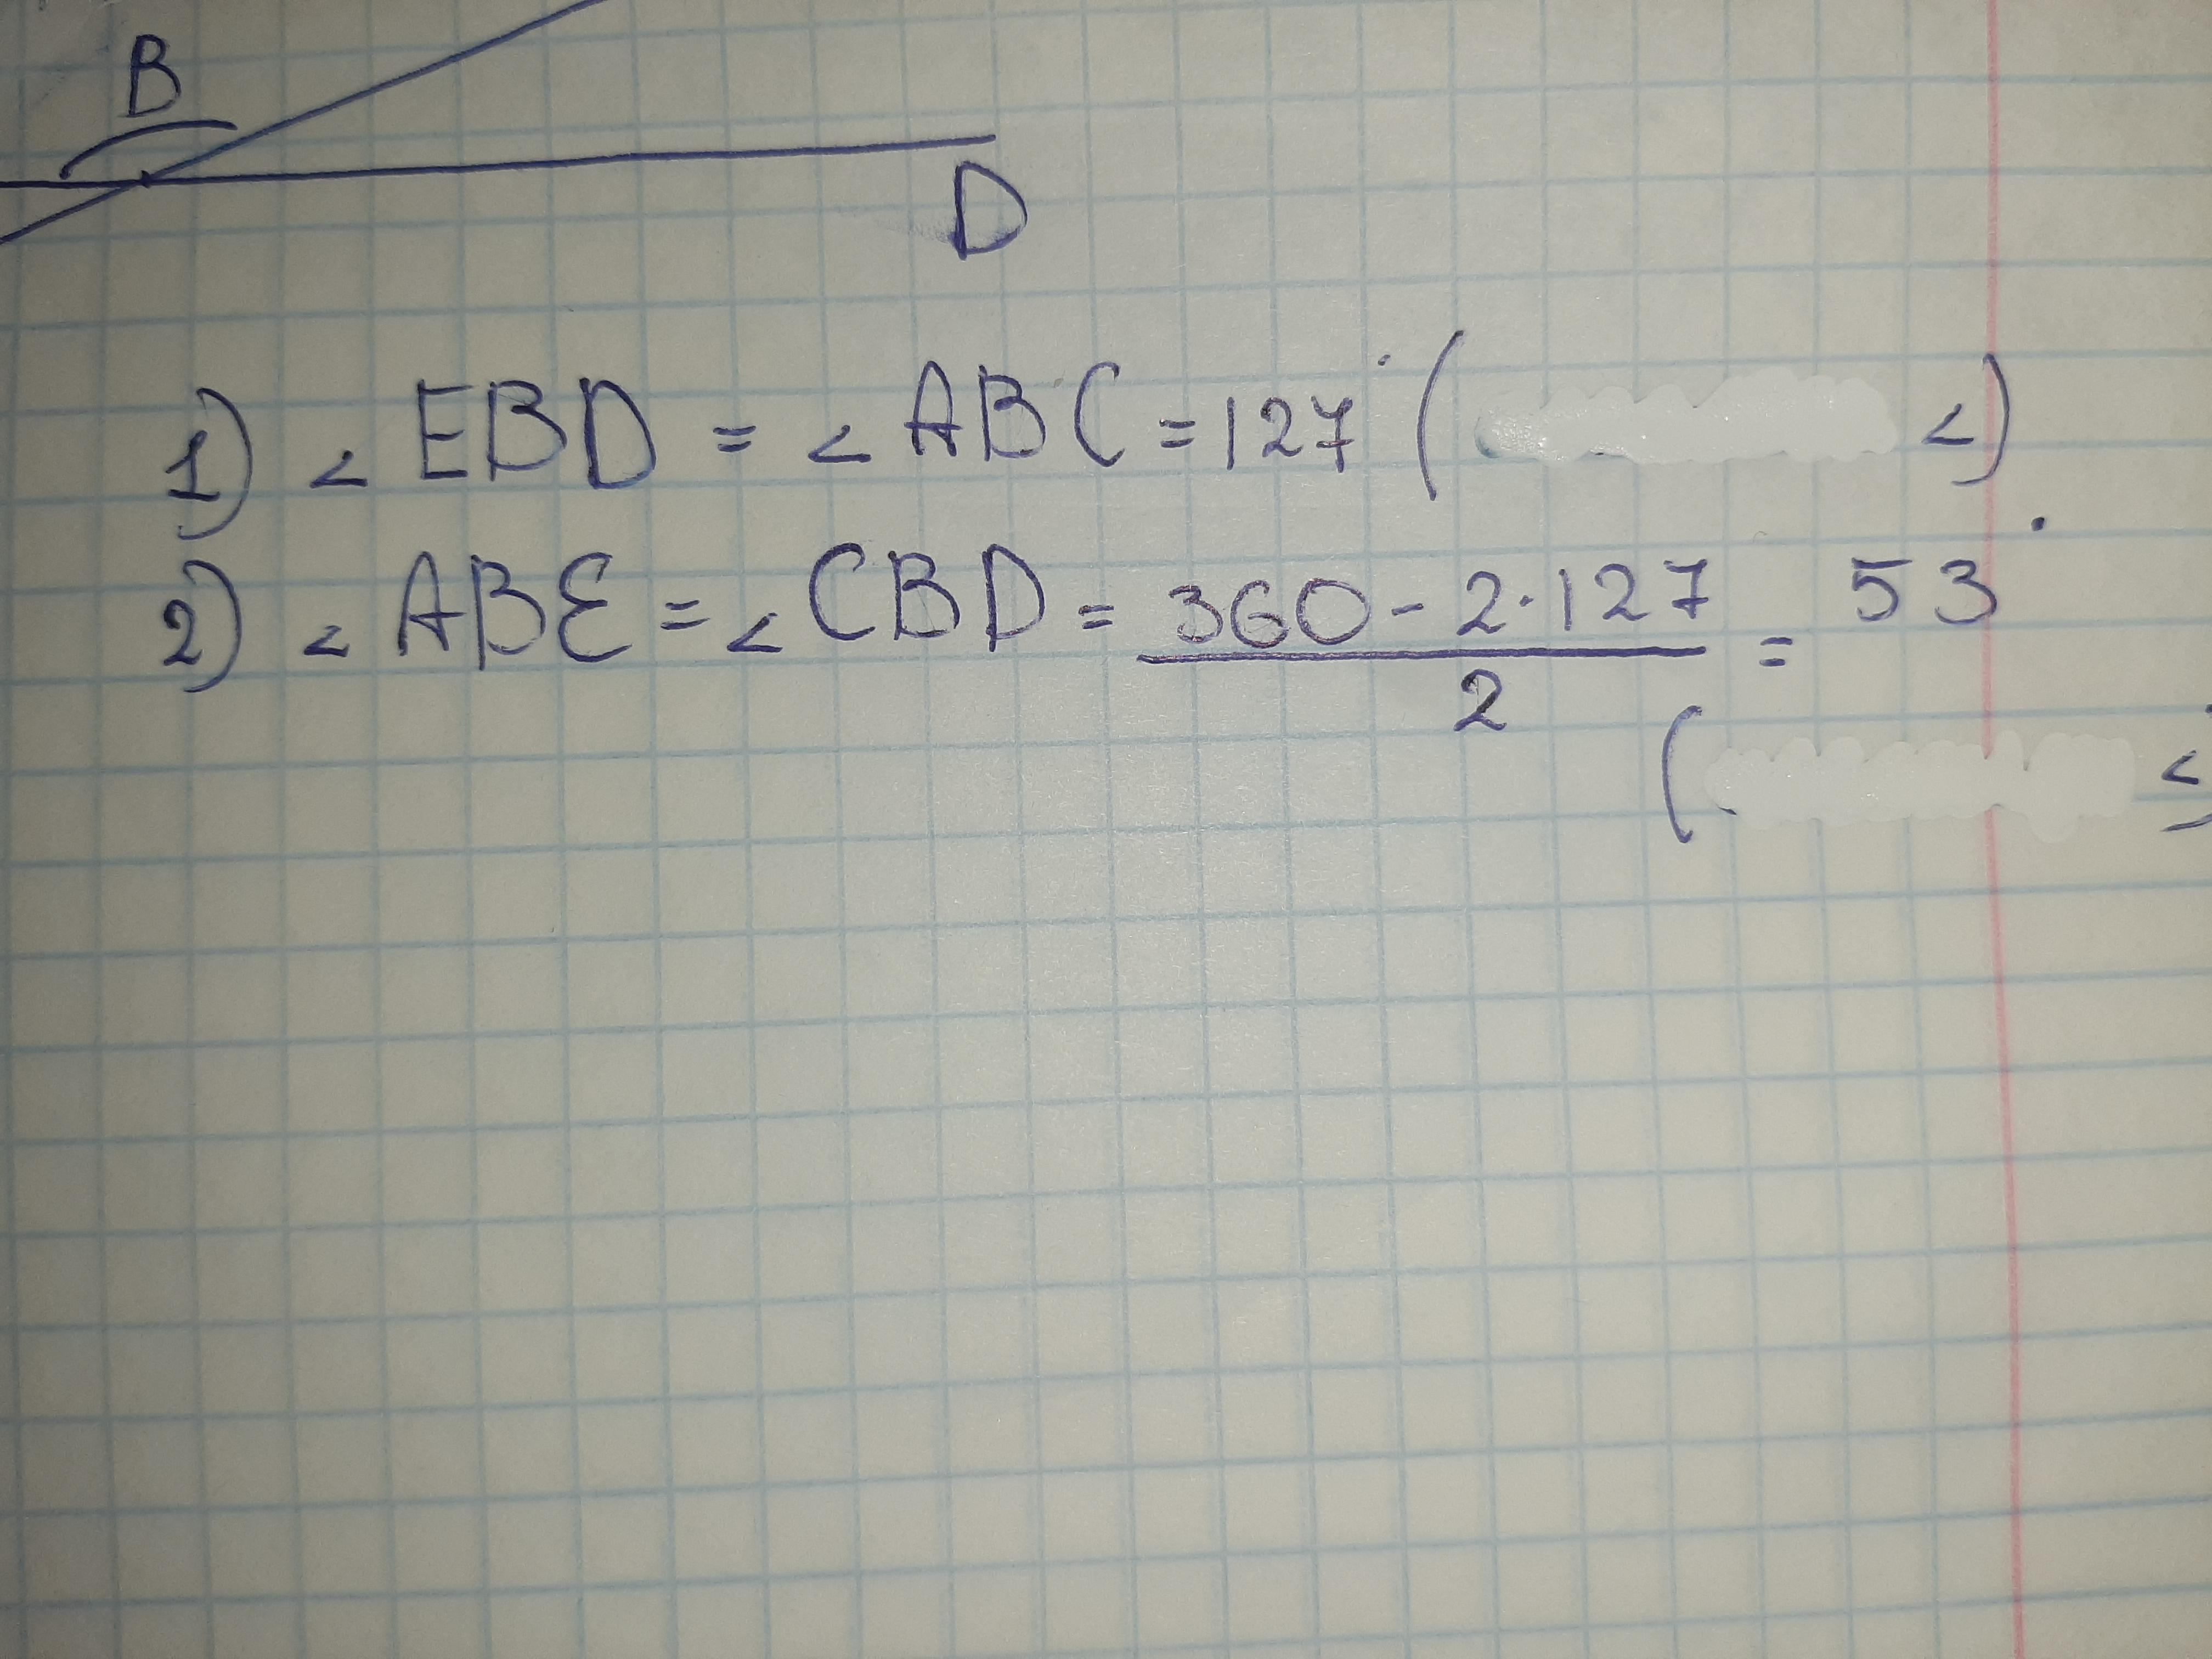 B
D
1) < EBD = < ABC = 127° ( <)
2) < ABE = < CBD = \frac{360 - 2·127}{2} = 53°
( <)